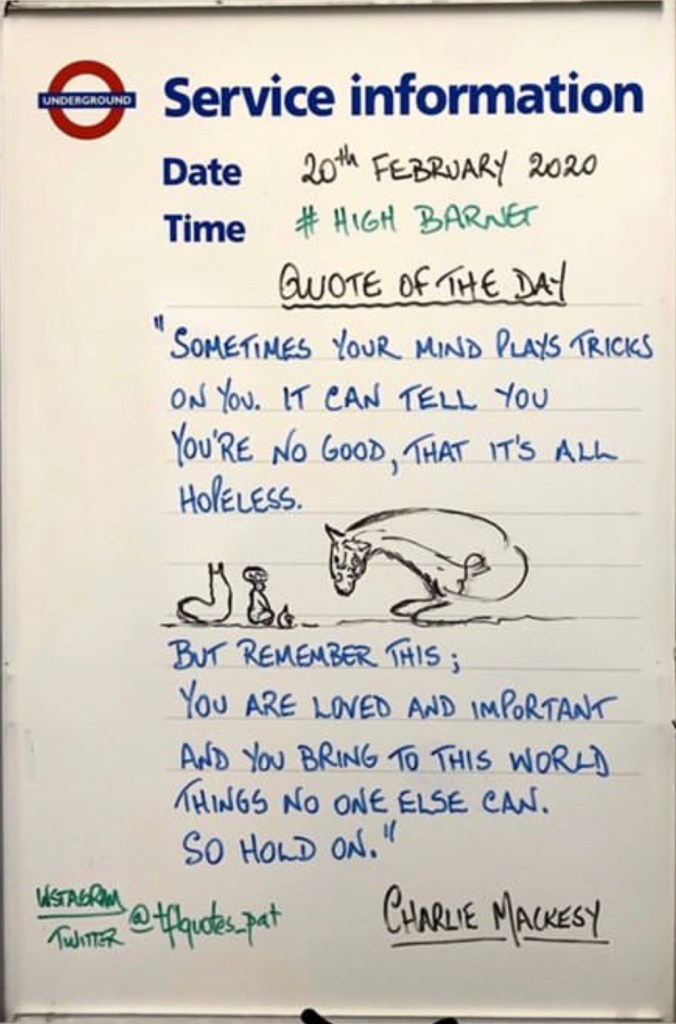 UNDERGROUND
Service information
Date 20th FEBRUARY 2020
Time # HIGH BARNET
QUOTE OF THE DAY
"SOMETIMES YOUR MIND PLAYS TRICKS
ON YOU. IT CAN TELL YOU
YOU'RE NO GOOD, THAT IT'S ALL
HOPELESS.
BUT REMEMBER THIS;
YOU ARE LOVED AND IMPORTANT
AND YOU BRING TO THIS WORLD
THINGS NO ONE ELSE CAN.
SO HOLD ON."
INSTAGRAM
TWITTER @tflquotes_pat
CHARLIE MACKESY